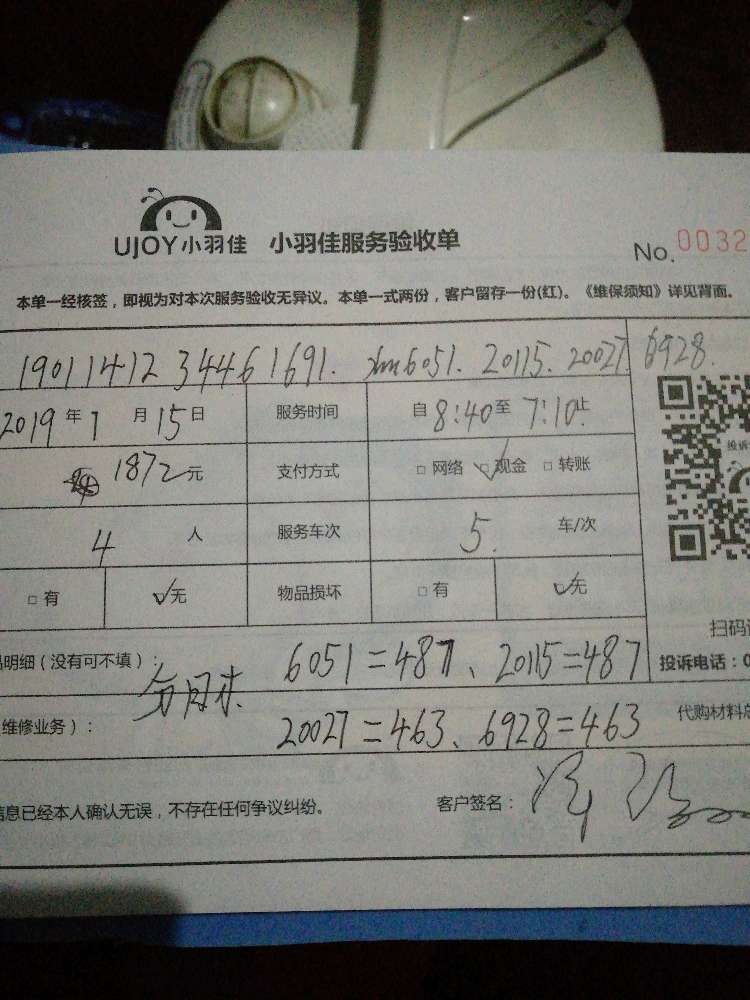 UJOY小羽佳 小羽佳服务验收单 No. 0032
本单一经核签，即视为对本次服务验收无异议。本单一式两份，客户留存一份(红)。《维保须知》详见背面。
1901141234461691. 6051. 20115. 20027 6928.
2019年1月15日 服务时间 自8:40至7:10止
1872元 支付方式 □网络 ☑现金 □转账
投诉
4人 服务车次 5.车/次
□有 ☑无 物品损坏 □有 ☑无
扫码
明细（没有可不填）： 6051=487、20115=487 投诉电话：0
维修业务）： 20027=463、6928=463 代购材料总
信息已经本人确认无误，不存在任何争议纠纷。 客户签名：